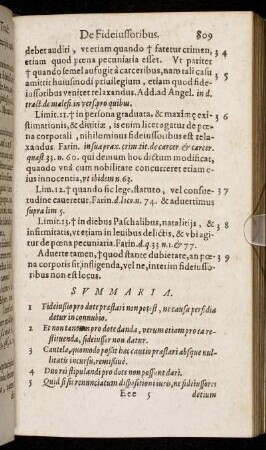 De Fideiussoribus. 809
debet auditi, vt etiam quando † fatetur crimen, 34
etiam quod pœna pecuniaria esset. Vt pariter
† quando semel aufugit à carceribus, nam tali casu 35
amittit huiusmodi priuilegium, etiam quod fideiussoribus
veniret relaxandus. Add. ad Angel. in d.
tract. de malefi. in vers. pro quibus.
Limit. 11. † in persona graduata, & maximè exi 36
stimationis, & diuitiæ, is enim licet agatur de pœna
corporali, nihilominus fideiussoribus est relaxandus.
Farin. in sua prax. crim. tit. de carcer. & carcer.
quæst. 33. n. 60. qui demum hoc dictum modificat,
quando vnà cum nobilitate concurreret etiam eius
innocentia, vt ibidem n. 63.
Lim. 12. † quando sic lege, statuto, vel consue- 37
tudine caueretur. Farin. d. loco n. 74. & aduertimus
supra lim. 5.
Limit. 13. † in diebus Paschalibus, natalitijs, & 38
infirmitatis, vt etiam in leuibus delictis, & vbi agitur
de pœna pecuniaria. Farin. d. q. 33. n. 1. & 77.
Aduerte tamen, † quod stante dubietate, an pœ- 39
na corporis sit infligenda, vel ne, interim fideiussoribus
non est locus.
SVMMARIA.
1 Fideiussio pro dote præstari non potest, ne causa perfidia
datur in connubio.
2 Et non tantùm pro dote danda, verum etiam pro ea restituenda,
fideiussor non datur.
3 Cautela, quomodo possit hæc cautio præstari absque nullitatis
incursu, remissiuè.
4 Duo rei stipulandi pro dote non possunt dari.
5 Quid si sit renunciatum dispositioni iuris, ne fideiussores
Eee 5 dotium